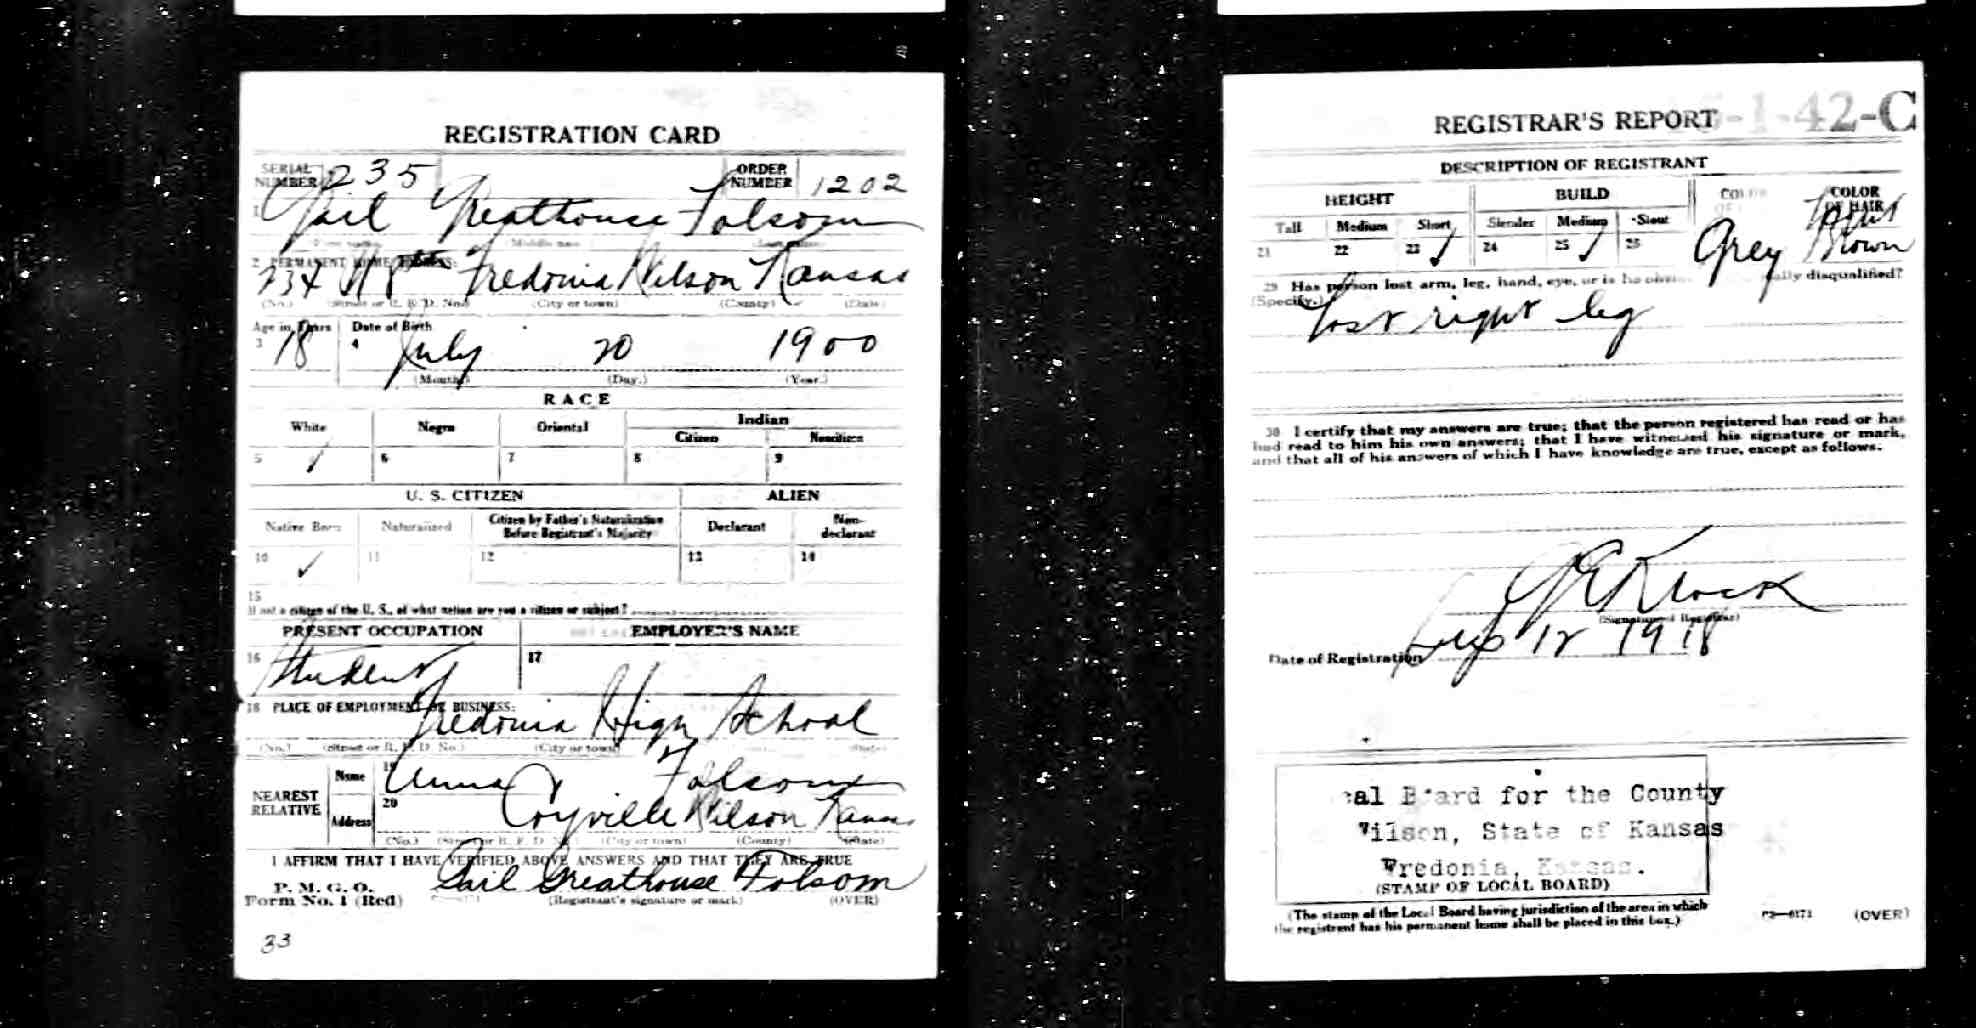 REGISTRATION CARD
SERIAL NUMBER 235 ORDER NUMBER 1202
1 Gail Greathouse Folsom
(First name) (Middle name) (Last name)
2 PERMANENT HOME ADDRESS:
234 N 8 Fredonia Wilson Kansas
(No.) (Street or R. F. D. No.) (City or town) (County) (State)
Age in Years Date of Birth
3 18 4 July 20 1900
(Month.) (Day.) (Year.)
RACE
White Negro Oriental Indian
Citizen Noncitizen
5 ✓ 6 7 8 9
U. S. CITIZEN ALIEN
Native Born Naturalized Citizen by Father's Naturalization Before Registrant's Majority Declarant Non-declarant
10 ✓ 11 12 13 14
15
If not a citizen of the U. S., of what nation are you a citizen or subject?
PRESENT OCCUPATION EMPLOYER'S NAME
16 Student 17
18 PLACE OF EMPLOYMENT OR BUSINESS:
Fredonia High School
(No.) (Street or R. F. D. No.) (City or town) (State)
NEAREST RELATIVE Name 19 Anna Folsom
Address 20 Coyville Wilson Kansas
(No.) (Street or R. F. D. No.) (City or town) (County) (State)
I AFFIRM THAT I HAVE VERIFIED ABOVE ANSWERS AND THAT THEY ARE TRUE
P. M. G. O.
Form No. 1 (Red) Gail Greathouse Folsom
(Registrant's signature or mark) (OVER)
33
-1-42-C
REGISTRAR'S REPORT
DESCRIPTION OF REGISTRANT
HEIGHT BUILD COLOR OF COLOR OF HAIR
Tall Medium Short Slender Medium Stout
21 22 23 / 24 25 / 26 Grey Light Brown
29 Has person lost arm, leg, hand, eye, or is he disqualified?
(Specify.)
Lost right leg
30 I certify that my answers are true; that the person registered has read or has
had read to him his own answers; that I have witnessed his signature or mark,
and that all of his answers of which I have knowledge are true, except as follows:
(Signature of Registrar)
Date of Registration Sep 12 1918
cal Board for the County
Wilson, State of Kansas
Fredonia, Kansas.
(STAMP OF LOCAL BOARD)
(The stamp of the Local Board having jurisdiction of the area in which
the registrant has his permanent home shall be placed in this box.)
(OVER)